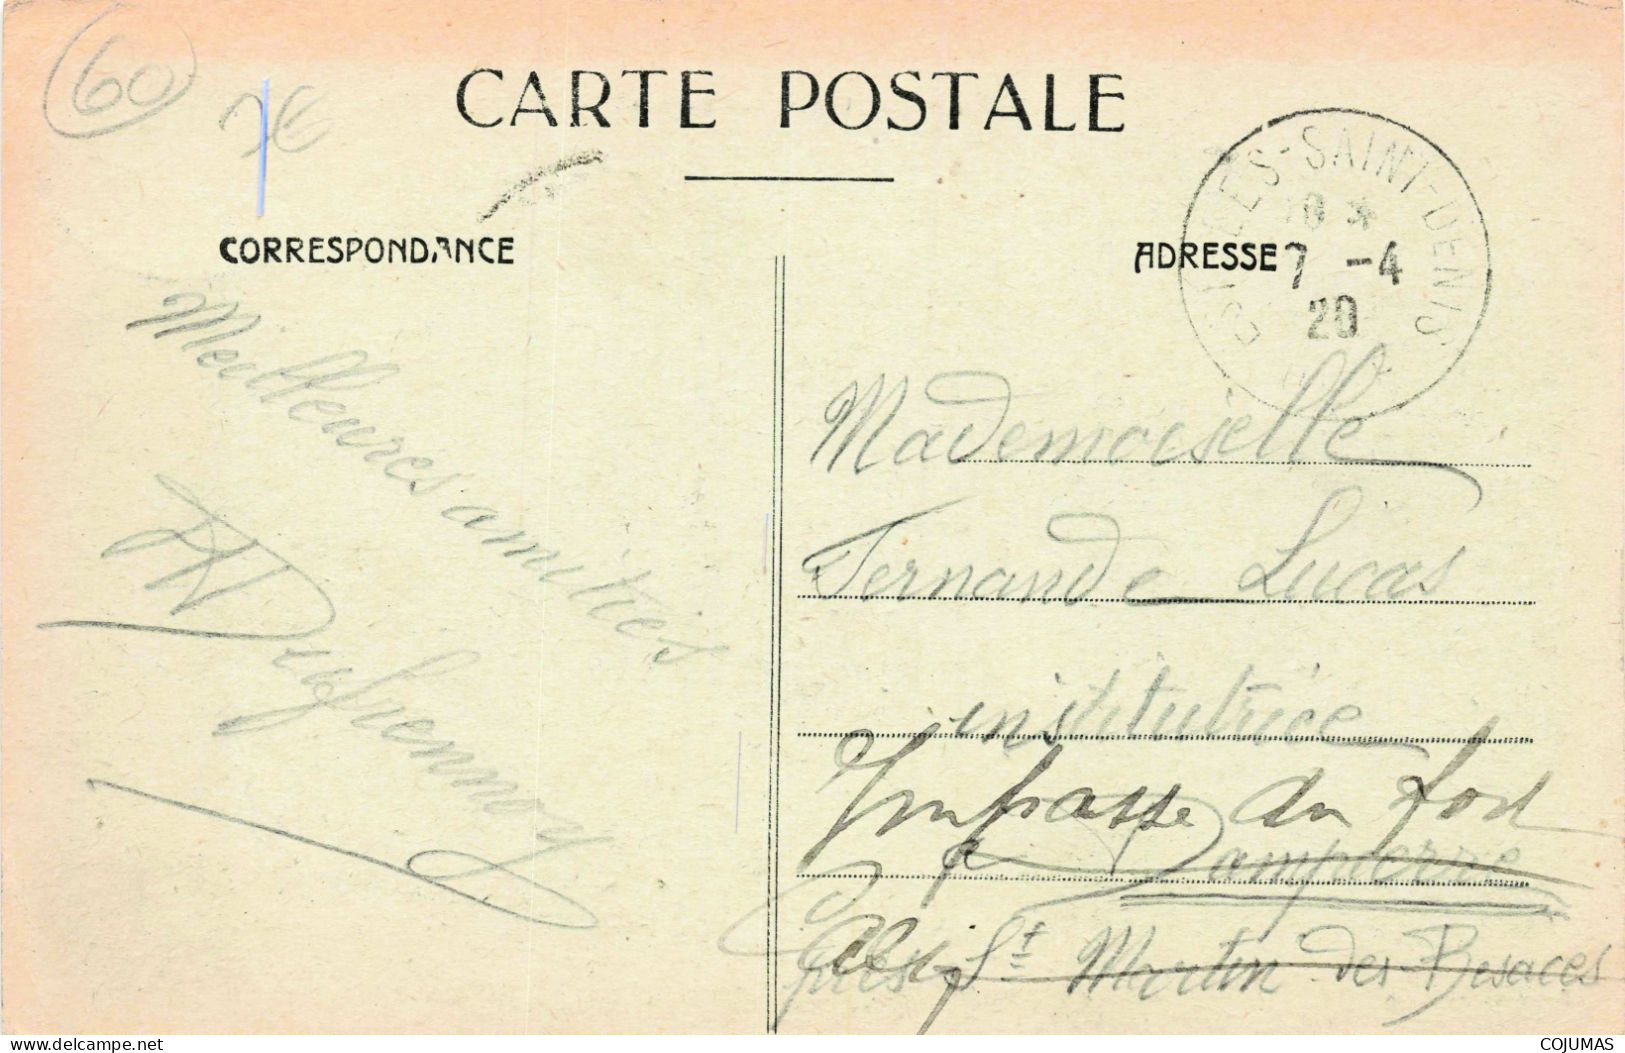 60
CARTE POSTALE
CORRESPONDANCE
ADRESSE
SAINT-DENIS
7 -4
20
Meilleures amitiés
Mademoiselle
Fernande Lucas
institutrice
Impasse du fort
à Dampierre
près St Martin des Besaces
delcampe.net
COJUMAS